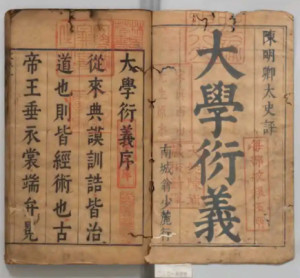 陳明卿太史評
大學衍義
大學衍義序
從來典謨訓誥皆治
道也則皆經術也古
帝王垂衣裳端弁冕